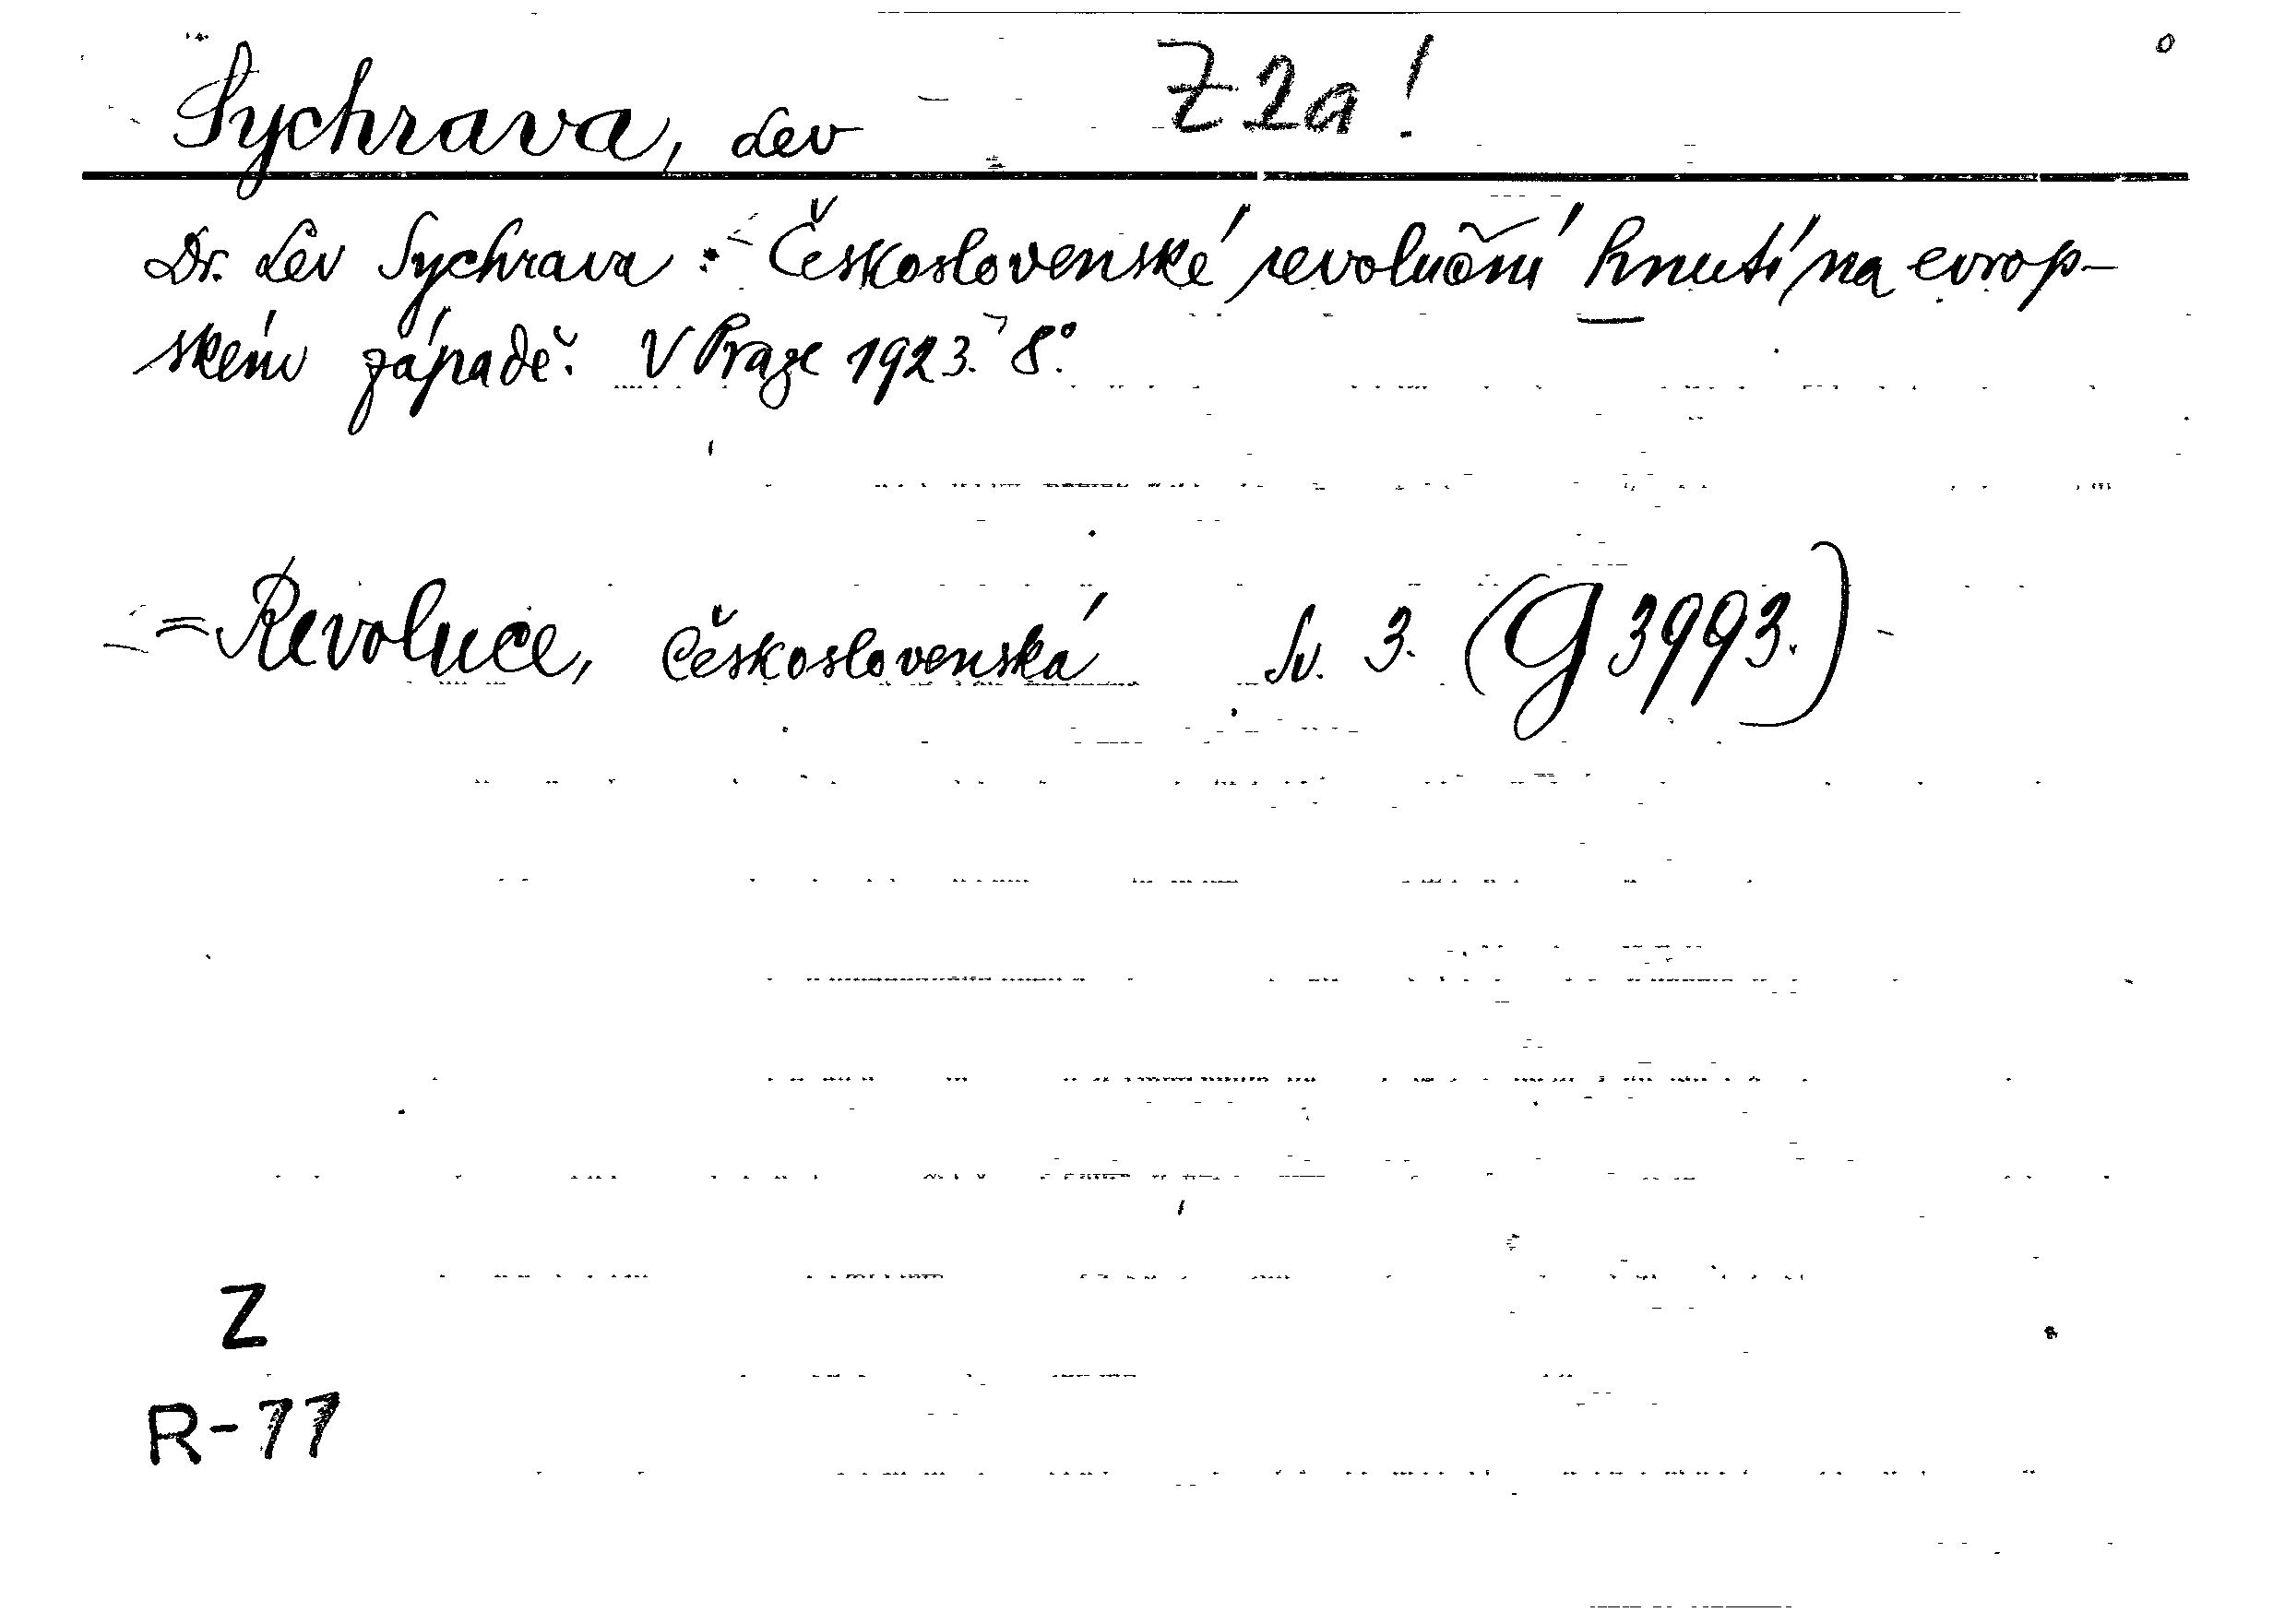 Sychrava, Lev Z 2a!
Dr. Lev Sychrava: Československé revoluční hnutí na evrop-
ském západě. V Praze 1923. 8°.
=Revoluce, Československá Sv. 3. (G 3993.)
Z
R-77